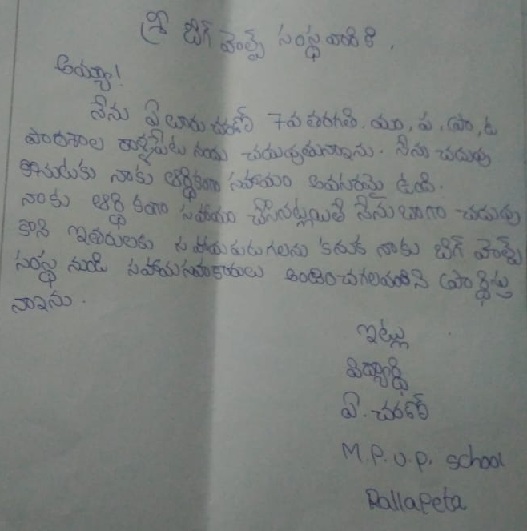 శ్రీ బిగ్ హెల్ప్ సంస్థ వారికి,
అయ్యా!
నేను ఏలూరు చరణ్ 7వ తరగతి. మం, ప, ప్రా, ఉ
పాఠశాల రాళ్లపేట నందు చదువుతున్నాను. నేను చదువు
కొనుటకు నాకు ఆర్ధికంగా సహాయం అవసరమై ఉంది.
నాకు ఆర్ధికంగా సహాయం చేసినట్లయితే నేను బాగా చదువు
కొని ఇతరులకు సహాయపడగలను కనుక నాకు బిగ్ హెల్ప్
సంస్థ నుండి సహాయసహకారాలు అందించగలరని ప్రార్థిస్తు
న్నాను.
ఇట్లు
విద్యార్థి
ఏ. చరణ్
M.P.U.P. School
Rallapeta